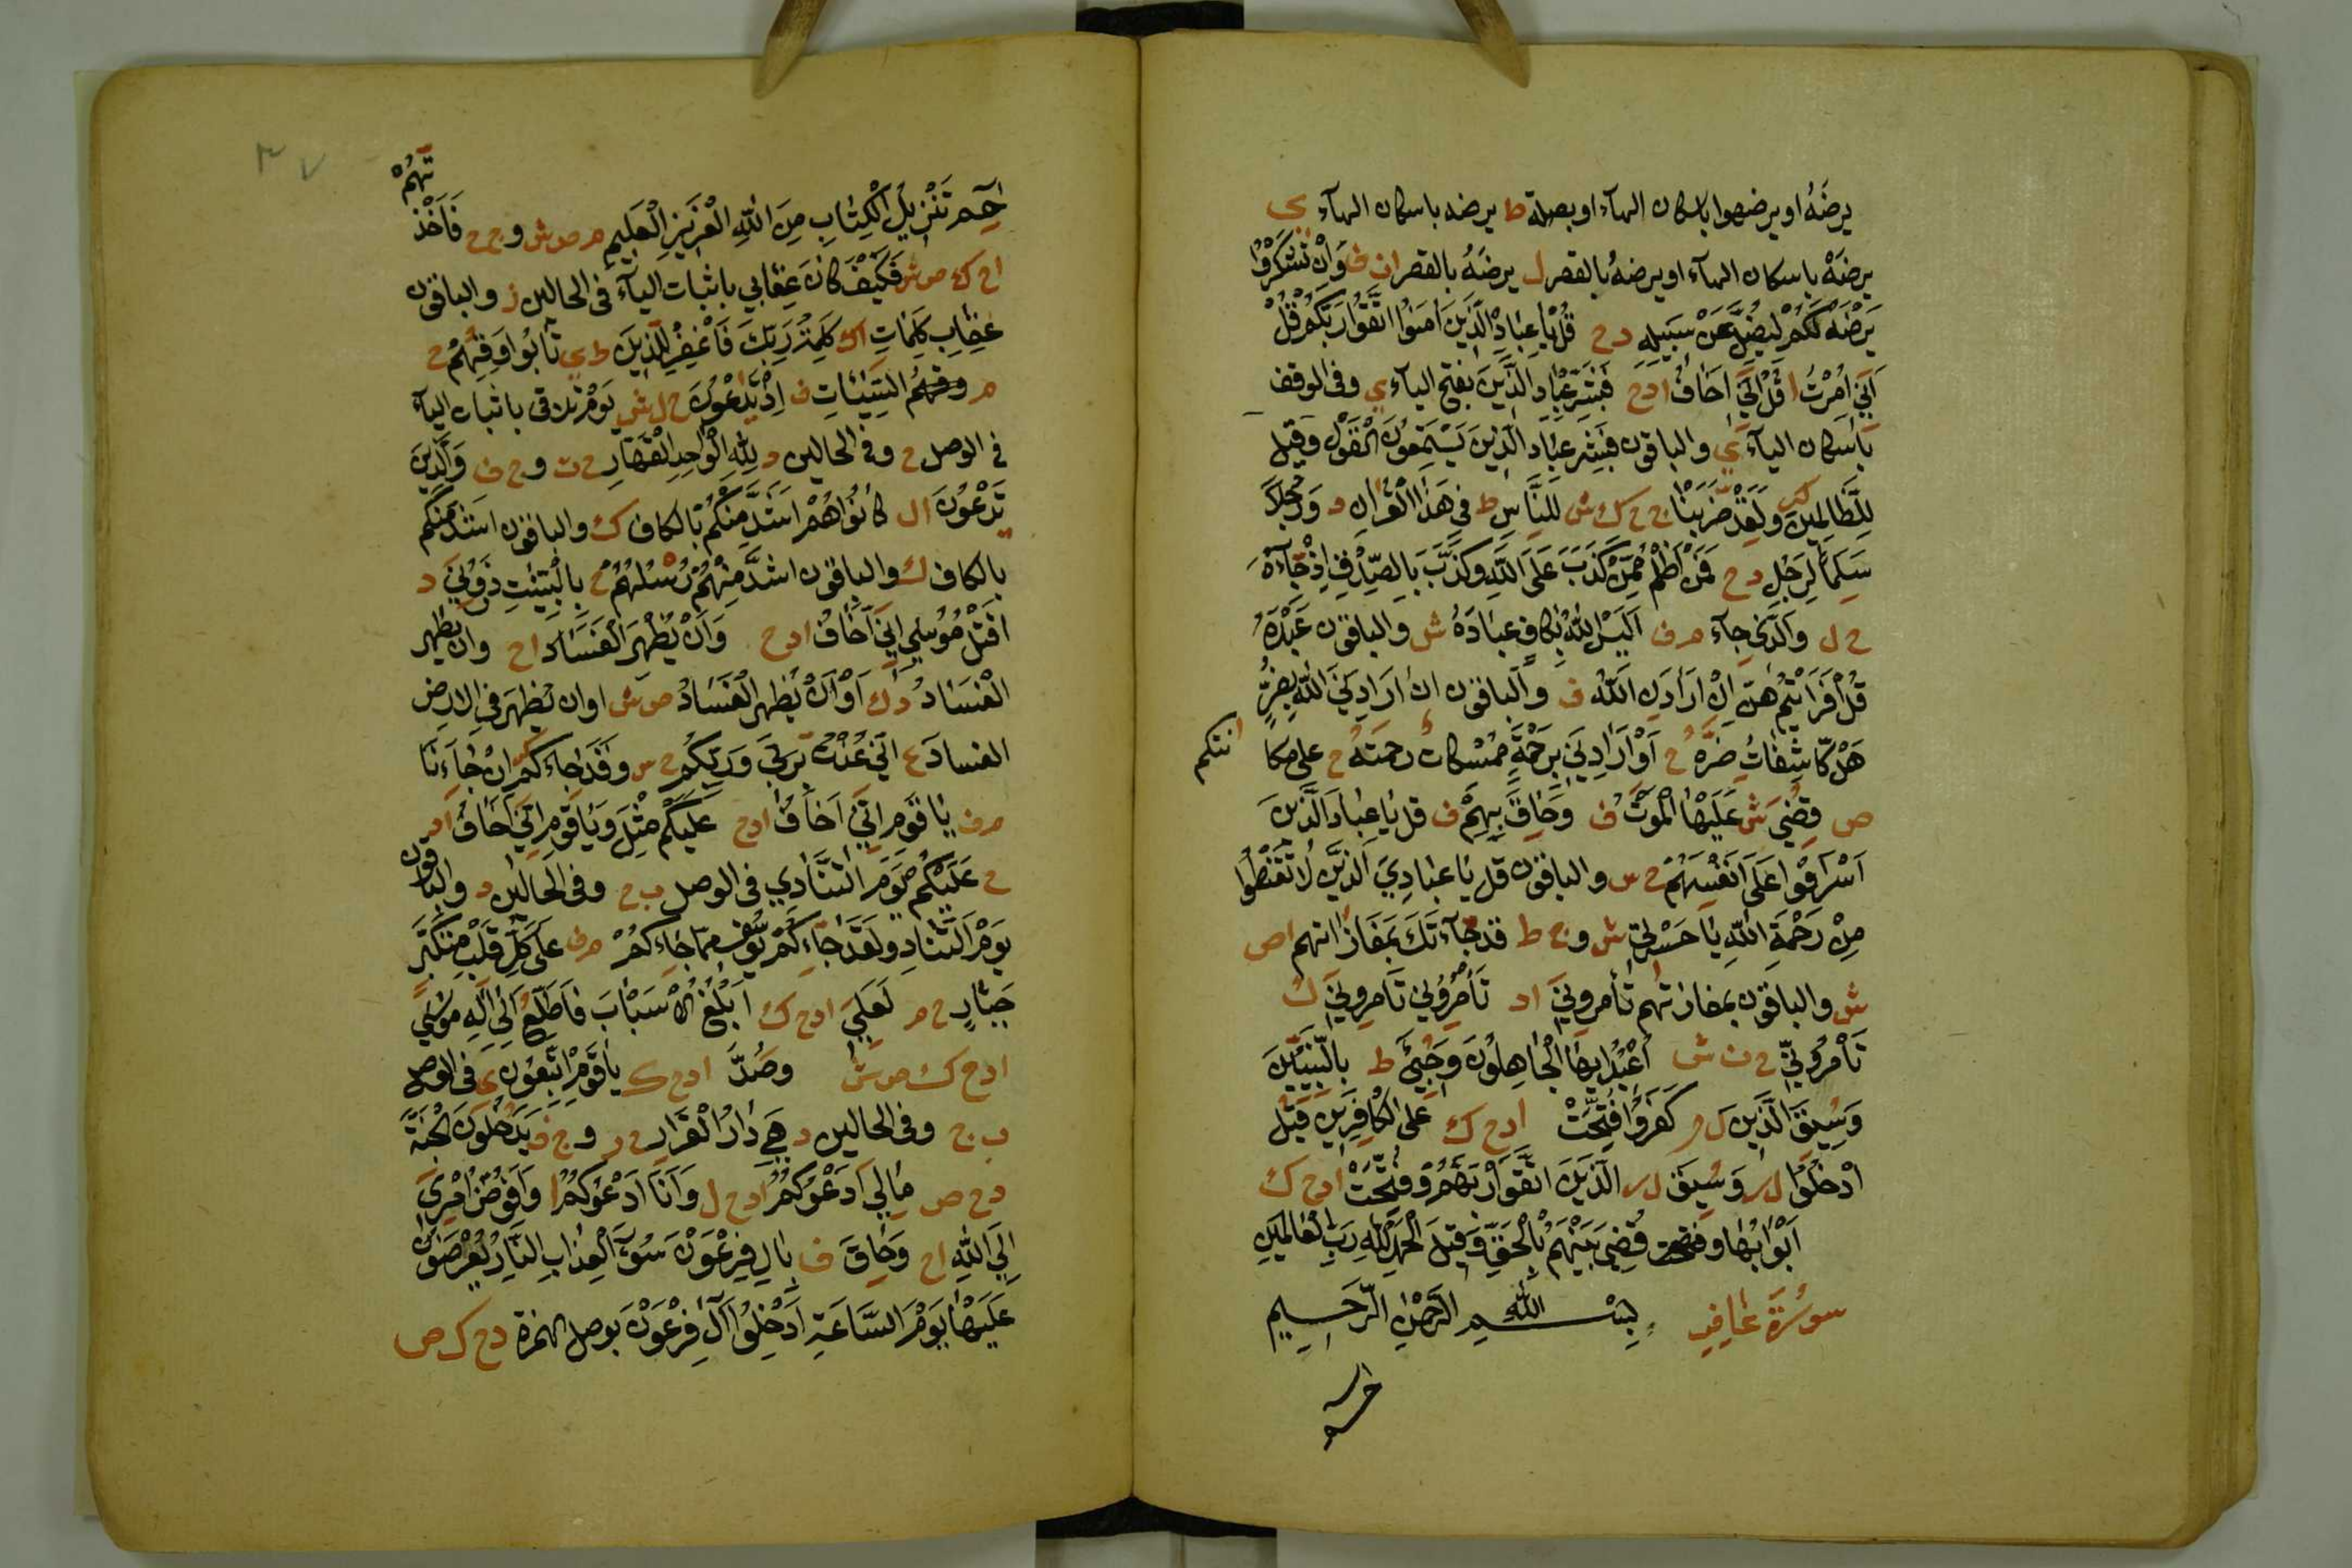 يرضَهُ او يرضهوا باسكان الهآء او بصلة ط يرضه باسكان الهآء ى
يرضَهْ باسكان الهآء او يرضهُ بالقصر ل يرضَهُ بالقصر ان ف وَاِنْ تَشْكُرُوا
يَرْضَهُ لَكُمْ لِيَضِلَّ عَنْ سَبِيلِهِ دح قُلْ يَا عِبَادِ الَّذِينَ اٰمَنُوا اتَّقُوا رَبَّكُمْ قُلْ
اِنِّي اُمِرْتُ ا قُلْ اِنِّي اَخَافُ ادح فَبَشِّرْ عِبَادِ الَّذِينَ بفتح اليآء ي وفى الوقف
باسكان اليآء ي والباقون فَبَشِّرْ عِبَادِ الَّذِينَ يَسْتَمِعُونَ الْقَوْلَ وَقِيلَ
لِلظَّالِمِينَ ولَقَدْ ضَرَبْنَا ج ح ك ش لِلنَّاسِ ط فِي هَذَا الْقُرْاٰنِ د وَرَجُلًا
سَلَمًا لِرَجُلٍ دح فَمَنْ اَظْلَمُ مِمَّنْ كَذَبَ عَلَى اللّٰهِ وَكَذَّبَ بِالصِّدْقِ اِذْ جَآءَهُ
ح ل وَالَّذِى جآء م ف اَلَيْسَ اللّٰهُ بِكَافٍ عِبَادَهُ ش والباقون عَبْدَهُ
قُلْ اَفَرَاَيْتُمْ اِنْ اَرَادَنِ اللّٰهُ ف والباقون ان اَرَادَنِيَ اللّٰهُ بِضُرٍّ
هَلْ كَاشِفَاتٌ ضُرَّهُ ح اَوْ اَرَادَنِي بِرَحْمَةٍ مُمْسِكَاتٌ رحمَتَهُ ح على مكا
انتكم
ص قُضِيَ ش عَلَيْهَا الْمَوْتُ ف وَحَاقَ بِهِمْ ف قل يَا عِبَادِيَ الَّذِينَ
اَسْرَفُوا عَلَى اَنْفُسِهِمْ ح س والباقون قل يَا عِبَادِيَ الَّذِينَ لَا تَقْنَطُوا
مِنْ رَحْمَةِ اللّٰهِ يَا حَسْرَتَى ش و ج ط قد جَآءَتكَ بمَفَازاتهم ا ص
ش والباقون بمفازتهم تَأمرونِيَ اد تَأْمُرُونِي تأمرونني ك
تَأْمُرُونِّي ح ن ش اَعْبُدُ اَيُّهَا الْجَاهِلُونَ وَجِيْءَ ط بِالنَّبِيِّينَ
وَسِيقَ الَّذِينَ ل ر كَفَرُوا فُتِّحَتْ ادح ك عَلَى الْكَافِرِينَ قِيلَ
ادْخُلُوا ل ر وَسِيقَ ل ر الَّذِينَ اتَّقَوْا رَبَّهُمْ وَفُتِّحَتْ ادح ك
اَبْوَابُهَا وفتحت قُضِيَ بَيْنَهُمْ بِالْحَقِّ وَقِيلَ الْحَمْدُ لِلّٰهِ رَبِّ الْعَالَمِينَ
سُورَةُ غَافِر بِسْمِ اللهِ الرَّحْمٰنِ الرَّحِيمِ
تهُمْ
حٰم تَنْزِيلُ الْكِتَابِ مِنَ اللّٰهِ الْعَزِيزِ الْعَلِيمِ م ص ش و ج ح فَاَخَذ
ا ح ك ص ش فَكَيْفَ كَانَ عِقَابِي باثبات اليآء فى الحالين ز والباقون
عِقَابِ كَلِمَاتُ اك كَلِمَتُ رَبِّكَ فَاغْفِرْ لِلَّذِينَ ط ى تَابُوا وَقِهِمْ ح
م وقهم السَّيِّئَاتِ ف اِذْ تُدْعَوْنَ ح ل ش يَوْمَ تلاقى باثبات اليآء
فى الوصل ح وفى الحالين د لِلّٰهِ الْوَاحِدِ الْقَهَّارِ ح ت و ج ف وَالَّذِينَ
تَدْعُونَ ال كَانُوا هُمْ اَشَدَّ مِنْكُمْ بالكاف ك والباقون اشدّ منكم
بالكاف ك والباقون اشدَّ مِنْهُمْ رُسْلُهُمْ ح بِالْبَيِّنٰتِ ذَرُونِيَ د
اَقْتُلْ مُوسٰى اِنِّي اَخَافُ ادح وَاَنْ يُظْهِرَ الْفَسَادَ اح وان يظهر
الْفَسَادُ دك اَوْ اَنْ يَظْهَرَ الْفَسَادُ ص ش او ان يُظْهِرَ فِي الارض
الفسادَ ع اِنِّي عُذْتُ بِرَبِّي وَرَبِّكُمْ ح س وَقَدْ جَاءَكُمْ اِنْ جَاءَنَا
م ف يَا قَوْمِ اِنِّي اَخَافُ ادح عَلَيْكُمْ مِثْلَ وَيَا قَوْمِ اِنِّي اَخَافُ اد
ح عَلَيْكُمْ يَوْمَ التَّنَادِي فى الوصل ب ح وفى الحالين د والباقون
يَوْمَ التَّنَادِ وَلَقَدْ جَاءَكُمْ يُوسُفُ مِمَّا جَاءَكُمْ م ف عَلَى كُلِّ قَلْبِ مُتَكَبِّرٍ
جَبَّارٍ ح م لَعَلِّيَ ادح ك اَبْلُغُ الْاَسْبَابَ فَاَطَّلِعُ اِلَى اِلٰهِ مُوسٰى
ادح ك ص ش وَصَدَّ ادح ك يَا قَوْمِ اتَّبِعُونِي فى الوصل
ب ج وفى الحالين د هِيَ دَارُ الْقَرَارِ ح ر و ج ف يُدْخَلُونَ الْجَنَّةَ
دح ص مَا لِي اَدْعُوكُمْ ادح ل وَاَنَا اَدْعُوكُمْ ا وَاُفَوِّضُ اَمْرِيَ
اِلَى اللّٰهِ اح وَحَاقَ ف بِاٰلِ فِرْعَوْنَ سُوءُ الْعَذَابِ النَّارُ يُعْرَضُونَ
عَلَيْهَا يَوْمَ السَّاعَةِ ادْخُلُوا اٰلَ فِرْعَوْنَ بوصل الهمزة دح ك ص